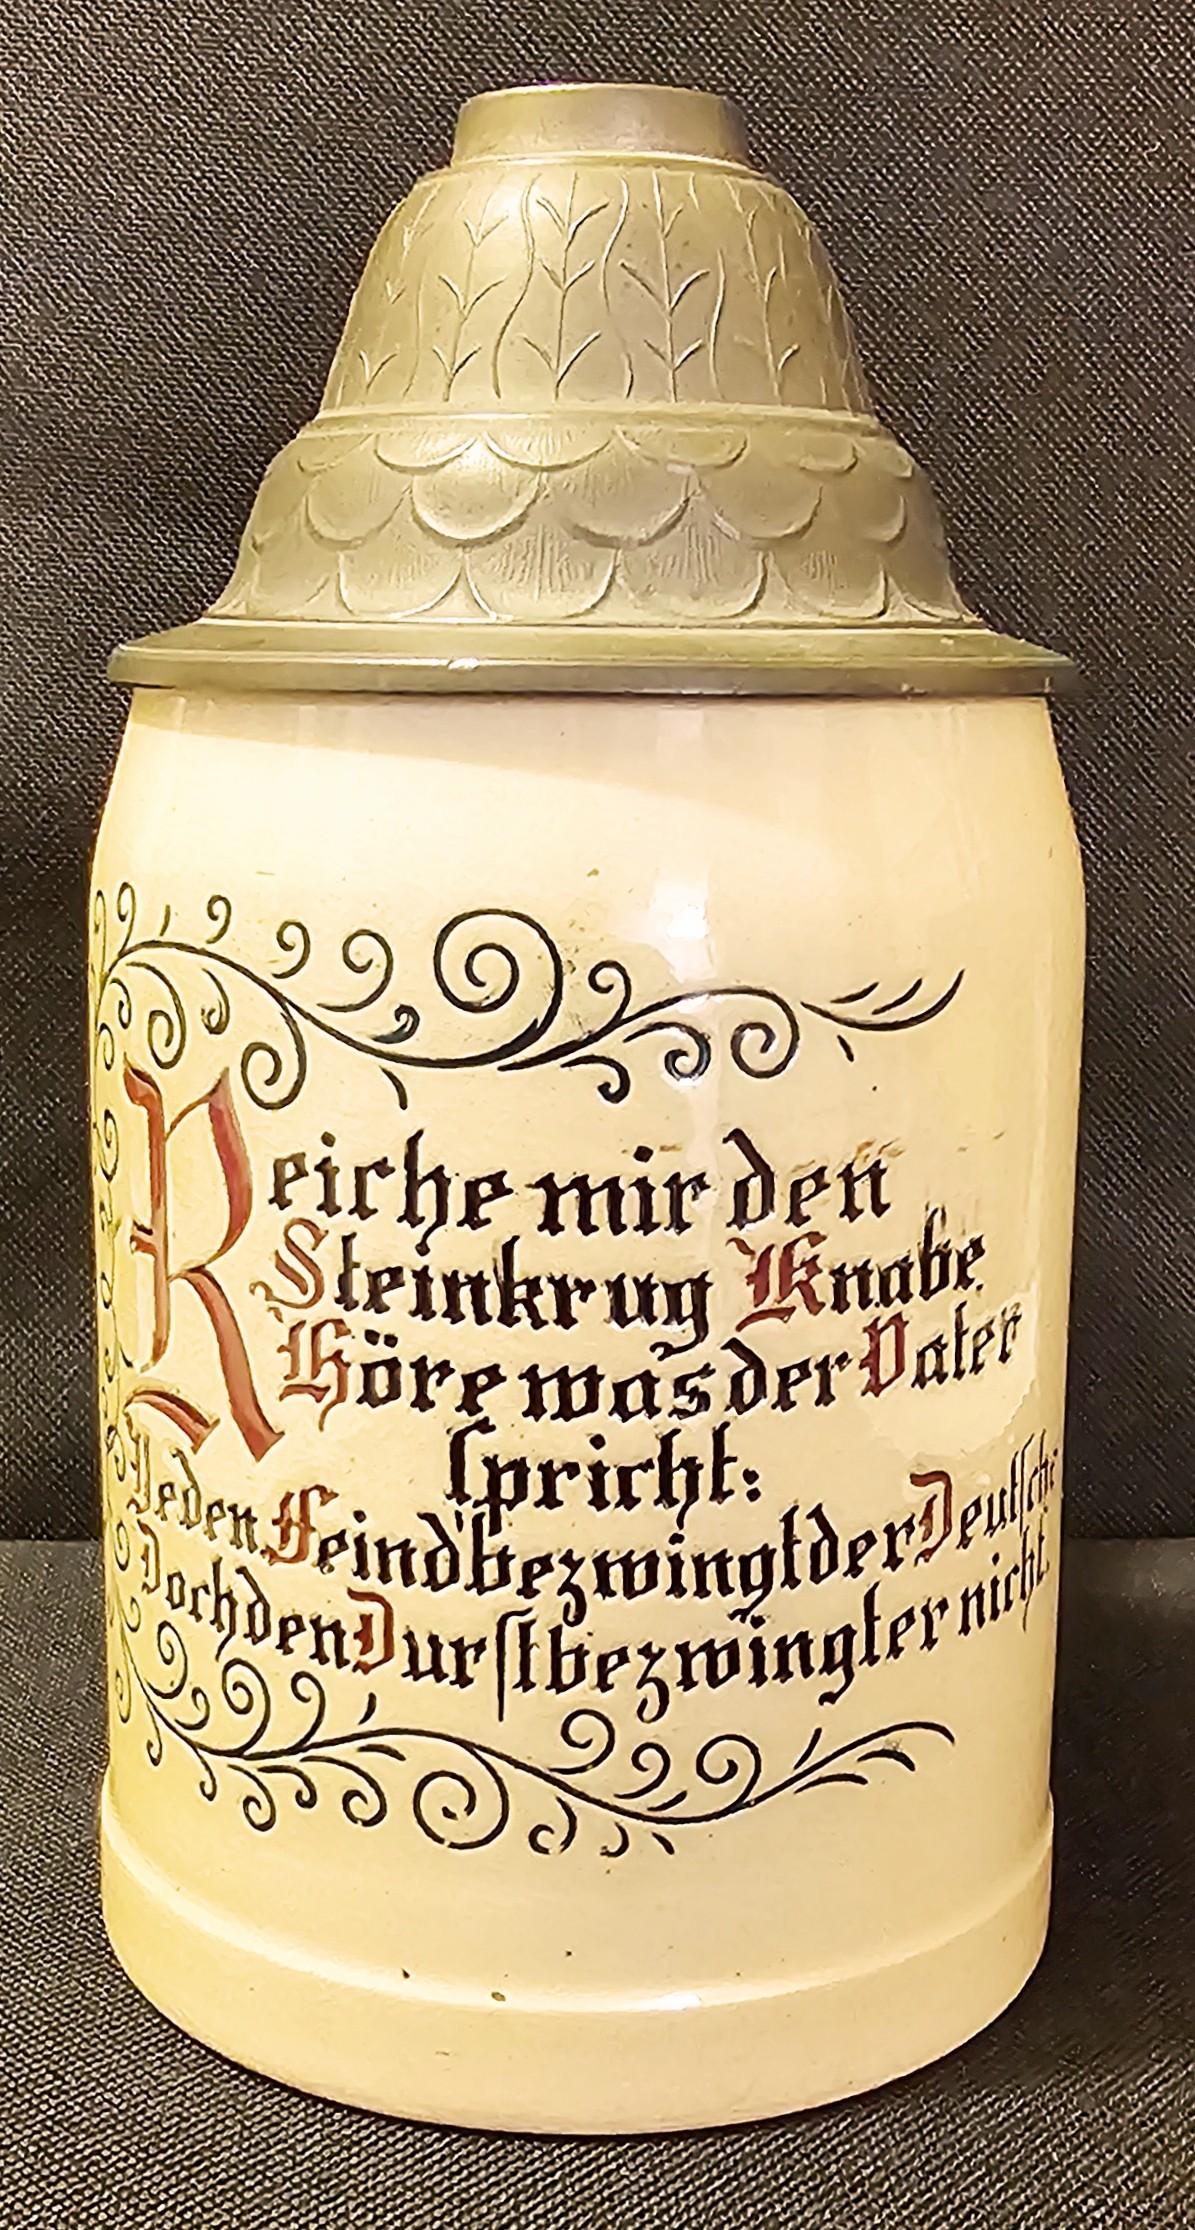 Reiche mir den
Steinkrug Knabe
Höre was der Vater
ſpricht:
Jeden Feind bezwingt der Deutſche
Doch den Durſt bezwingt er nicht.